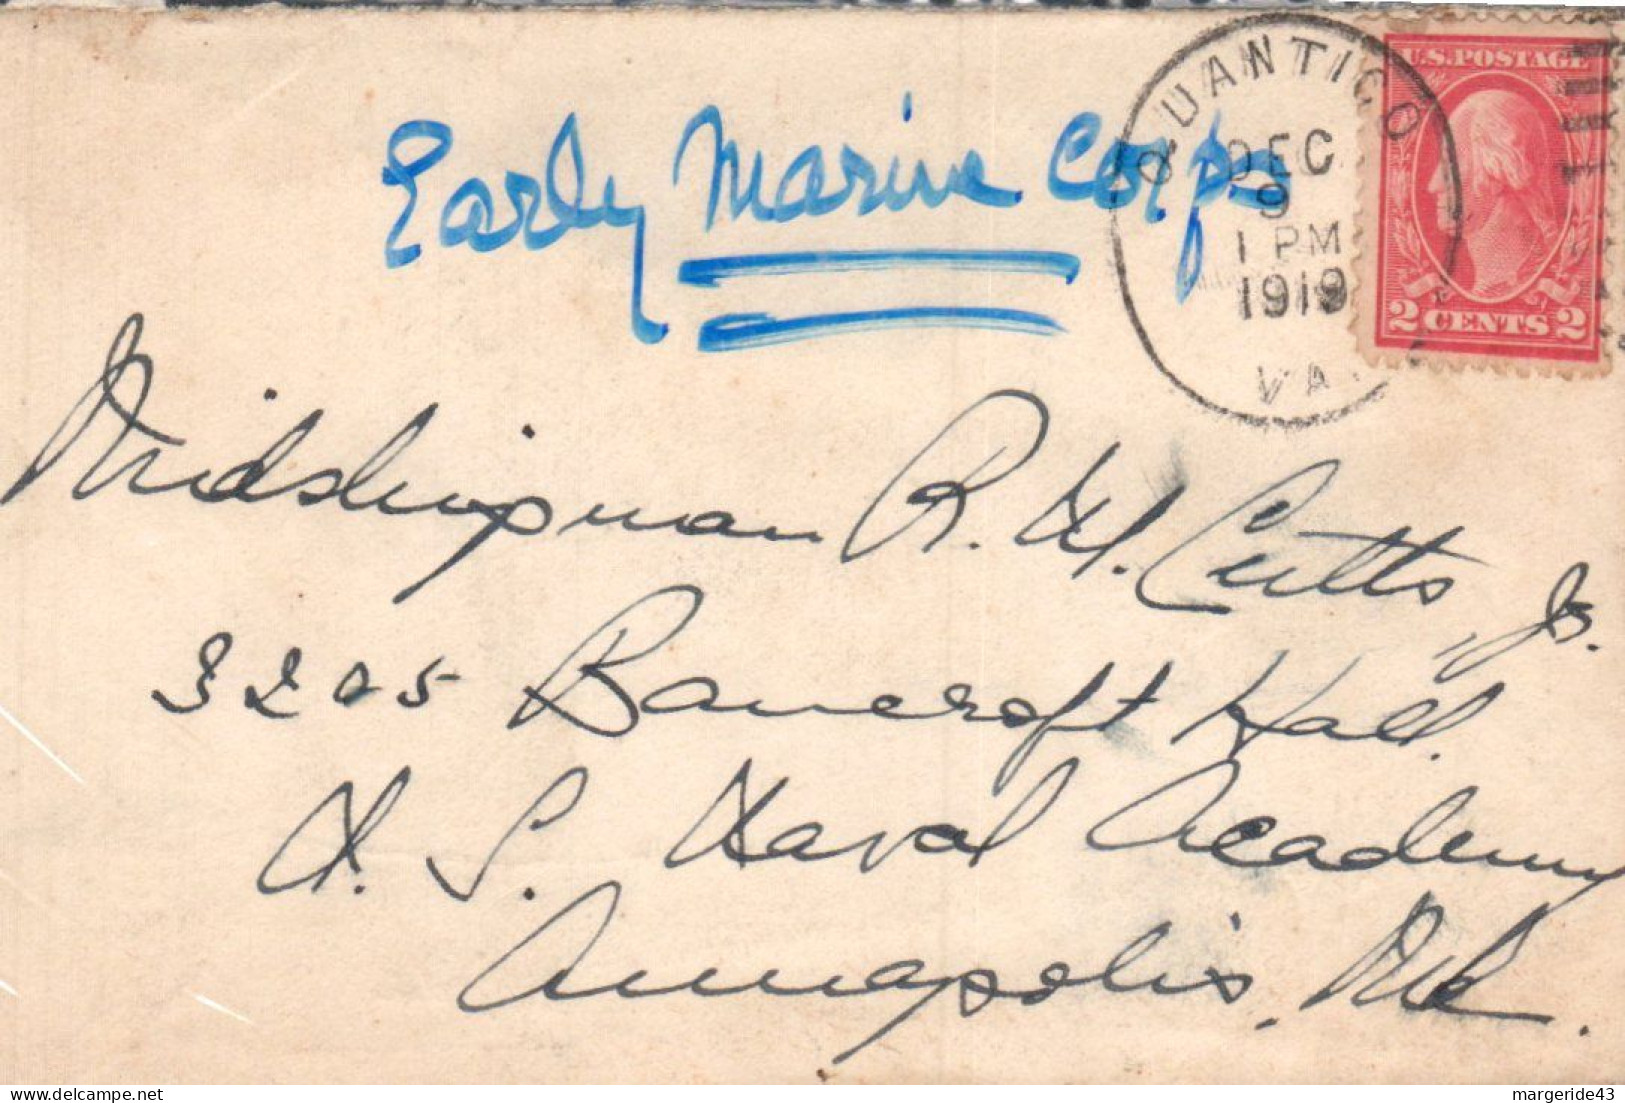 U.S. POSTAGE
QUANTICO
DEC
9
1 PM
1919
VA.
2 CENTS 2
Early Marine Corps
Midshipman R. M. Cutts, Jr.
3205 Bancroft Hall.
U. S. Naval Academy
Annapolis, Md.
www.delcampe.net
margeride43